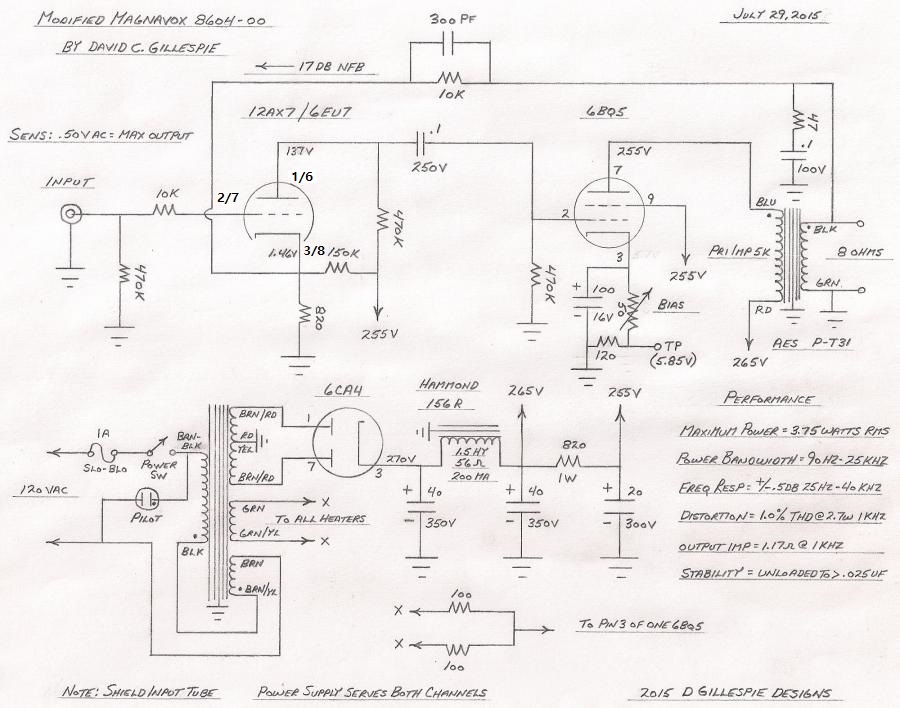 MODIFIED MAGNAVOX 8604-00
BY DAVID C. GILLESPIE
300 PF
JULY 29, 2015
← 17 DB NFB
10K
12AX7/6EU7
6BQ5
SENS: .50VAC = MAX OUTPUT
137V
1/6
.1
250V
255V
7
47
.1
100V
INPUT
10K
2/7
2
9
BLU
BLK
8 OHMS
470K
1.46V
3/8
150K
470K
470K
3
255V
PRI IMP 5K
GRN
820
255V
+
100
-
16V
50
BIAS
120
TP
(5.85V)
RD
265V
AES P-T31
6CA4
HAMMOND
156R
265V
255V
PERFORMANCE
1A
SLO-BLO
POWER
SW
BRN-
BLK
BRN/RD
RD
YEL
BRN/RD
1
7
3
270V
1.5HY
56Ω
200MA
820
1W
MAXIMUM POWER = 3.75 WATTS RMS
POWER BANDWIDTH = 90HZ-25KHZ
120VAC
PILOT
GRN
GRN/YL
X
TO ALL HEATERS
X
+
40
-
350V
+
40
-
350V
+
20
-
300V
FREQ RESP = +/-.5DB 25HZ-40KHZ
DISTORTION = 1.0% THD @ 2.7W 1KHZ
BLK
OUTPUT IMP = 1.17Ω @ 1KHZ
BRN
BRN/YL
STABILITY = UNLOADED TO >.025UF
X
100
X
100
TO PIN 3 OF ONE 6BQ5
NOTE: SHIELD INPUT TUBE
POWER SUPPLY SERVES BOTH CHANNELS
2015 D GILLESPIE DESIGNS